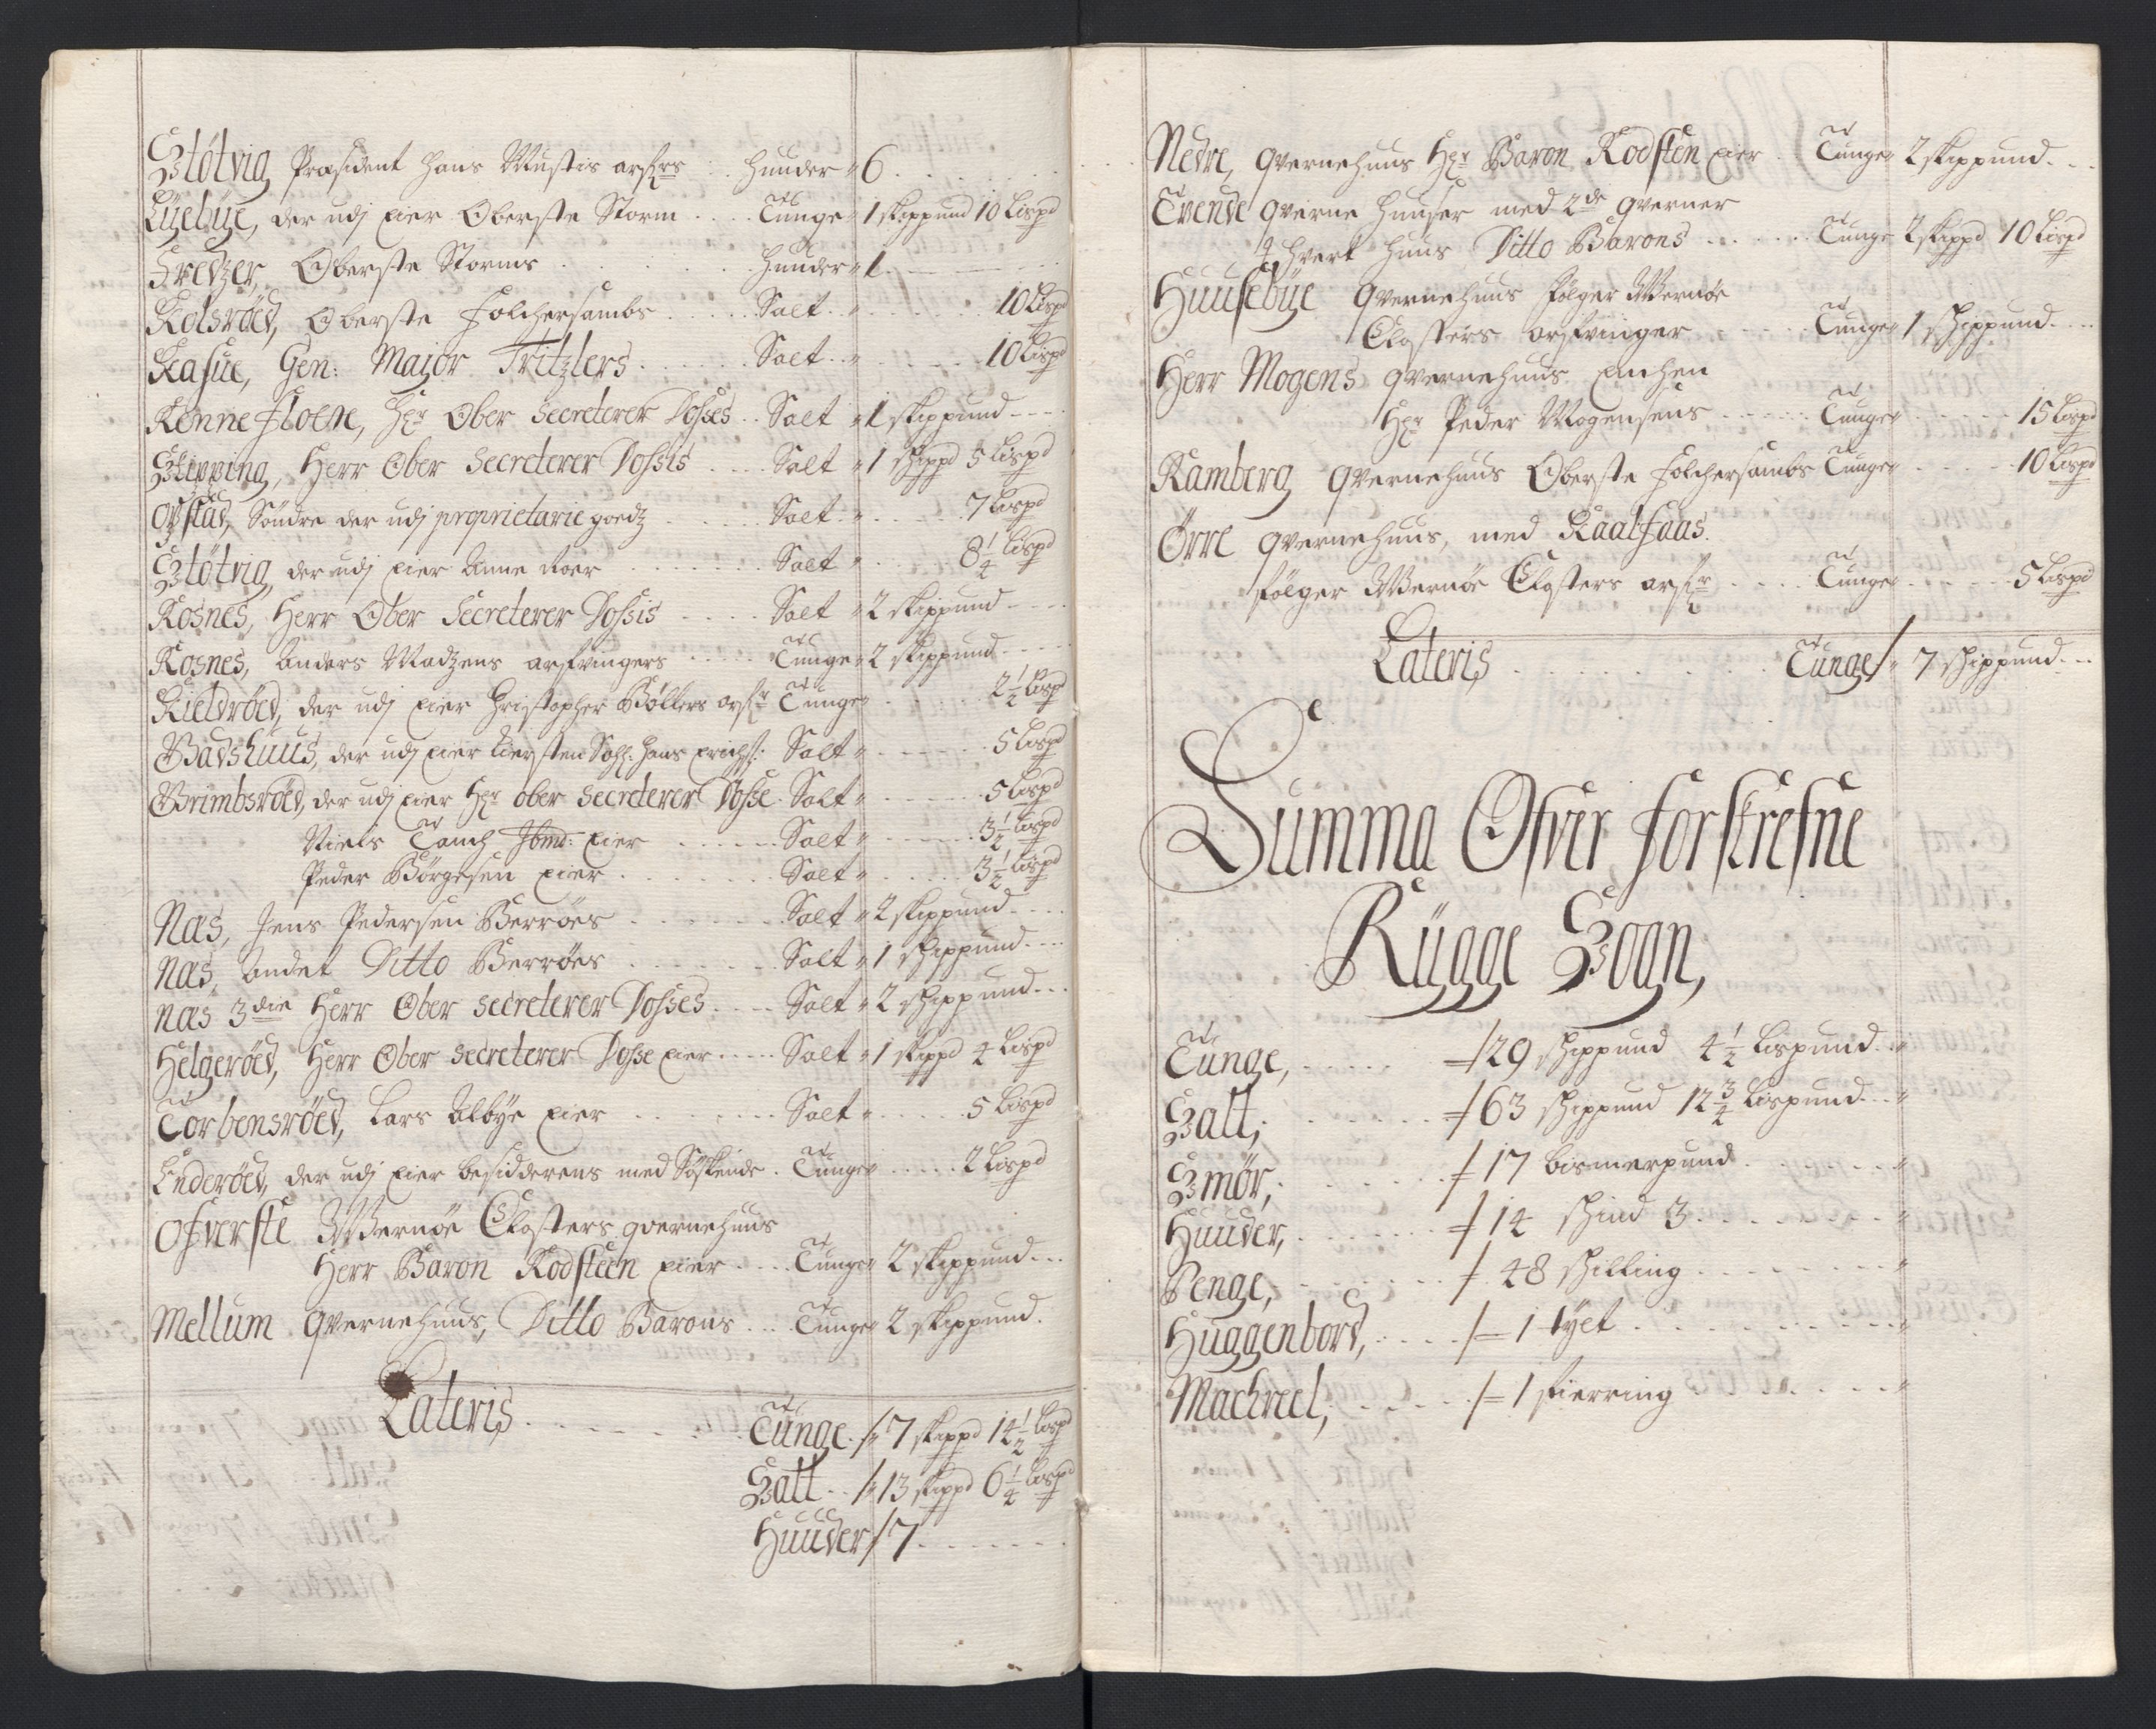 Støtvig, Præsident Hans Mustis arfrs . . Huuder " 6 . . .
Lÿebÿe, der udj eier Oberste Storm . . . . Tunge " 1 skippund 10 Lispd
Oberste Storms . . . . . Huuder " 1 . . .
Kolsröed, Oberste Folchersambs . . . . . Salt . . " . . . . . 10 Lispd
Gen: Major Tritzlers . . . . . Salt . . " . . . . . 10 Lispd
Renne floene, Hr Ober Secreterer Dosses . . Salt " 1 skippund - - -
Stipping, Herr Ober Secreterer Dossis . . . . Salt " 1 skippd 5 Lispd
Söndre der udj proprietarie goedz . . . . . Salt . " . . . . 7 Lispd
Støtvig, der udj eier Anne . . . . . . Salt " . . . . 8 1/4 Lispd
Rosnes, Herr Ober Secreterer Dossis . . . . Salt " 2 skippund - - -
Rosnes, Anders Madzens arfvingers . . . . Tunge " 2 skippund - - -
Kieldröed, der udj eier Christopher Böllers arfr Tunge " . . . . . 2 1/2 Lispd
Badshuus, der udj eier Kiersten Sahl: Hans Erichs: Salt " . . . . . 5 Lispd
Brimbsröed, der udj eier Hr Ober Secreterer Dosse . Salt " . . . . . 5 Lispd
Niels Tanch eier . . . . . Salt " . . . . . 3 1/2 Lispd
Peder Börgesen eier . . . . . . Salt " . . . . . 3 1/2 Lispd
Næs, Jens Pedersen Berröes . . . . . Salt " 2 skippund . . .
Næs, Andet Ditto Berröes . . . . . . Salt " 1 skippund . . .
Næs 3die Herr Ober Secreterer Dosses . . . . Salt " 2 skippund . . .
Helgeröed, Herr Ober Secreterer Dosse eier . . . . . Salt " 1 skippd 4 Lispd
Torbensröed, Lars Albye eier . . . . . . Salt " . . . . . 5 Lispd
Enderöed, der udj eier besidderens med Söskende . Tunge " . . . . . 2 Lispd
Ofverste Wernöe Closters qvernehuus
Herr Baron Rodsteen eier . . . . Tunge " 2 skippund . . .
Mellum Qvernehuus, Ditto Barons . . . Tunge " 2 skippund .
Lateris . . . . . . Tunge . /" 7 skippd 14 1/2 Lispd
Salt . . /" 13 skippd 6 1/4 Lispd
Huuder / 7 . . . . . .
Nedre, qvernehuus Hr Baron Rodsten eier . Tunge " 2 skippund . . .
Tvende qverne huuser med 2de qverner
i hvert huus Ditto Barons . . . . . Tunge 2 skippd 10 Lispd
Huusebÿe Qvernehuus følger Wernöe
Closters arfvinger . . . . . . Tunge " 1 skippund . . . .
Herr Mogens qvernehuus Enchen
Hr Peder Mogensens . . . . . Tunge " . . . . . 15 Lispd
Ramberg qvernehuus Oberste Folchersambs Tunge " . . . . . 10 Lispd
Örre qvernehuus, med Kaalsaas.
følger Wernöe Closters arfr . . . . Tunge " . . . . . 5 Lispd
Lateris . . . . . . . Tunge /" 7 skippund . . .
Summa Ofver forskrefne
Rügge Sogn,
Tunge, . . . . . /29 skippund 4 1/2 Lispund . . "
Salt, . . . . . . /63 skippund 12 3/4 Lispund . . "
Smör, . . . . . . /17 bismerpund . . . . . . "
Huuder, . . . . . . /14 skind 3 . . . . . . . "
Penge, . . . . . . / 48 skilling . . . . . . . "
Huggenbord, . . . . . /- 1 tÿlt . . . . . . . "
Machreel, . . . . . /- 1 fierring . . . . . . "